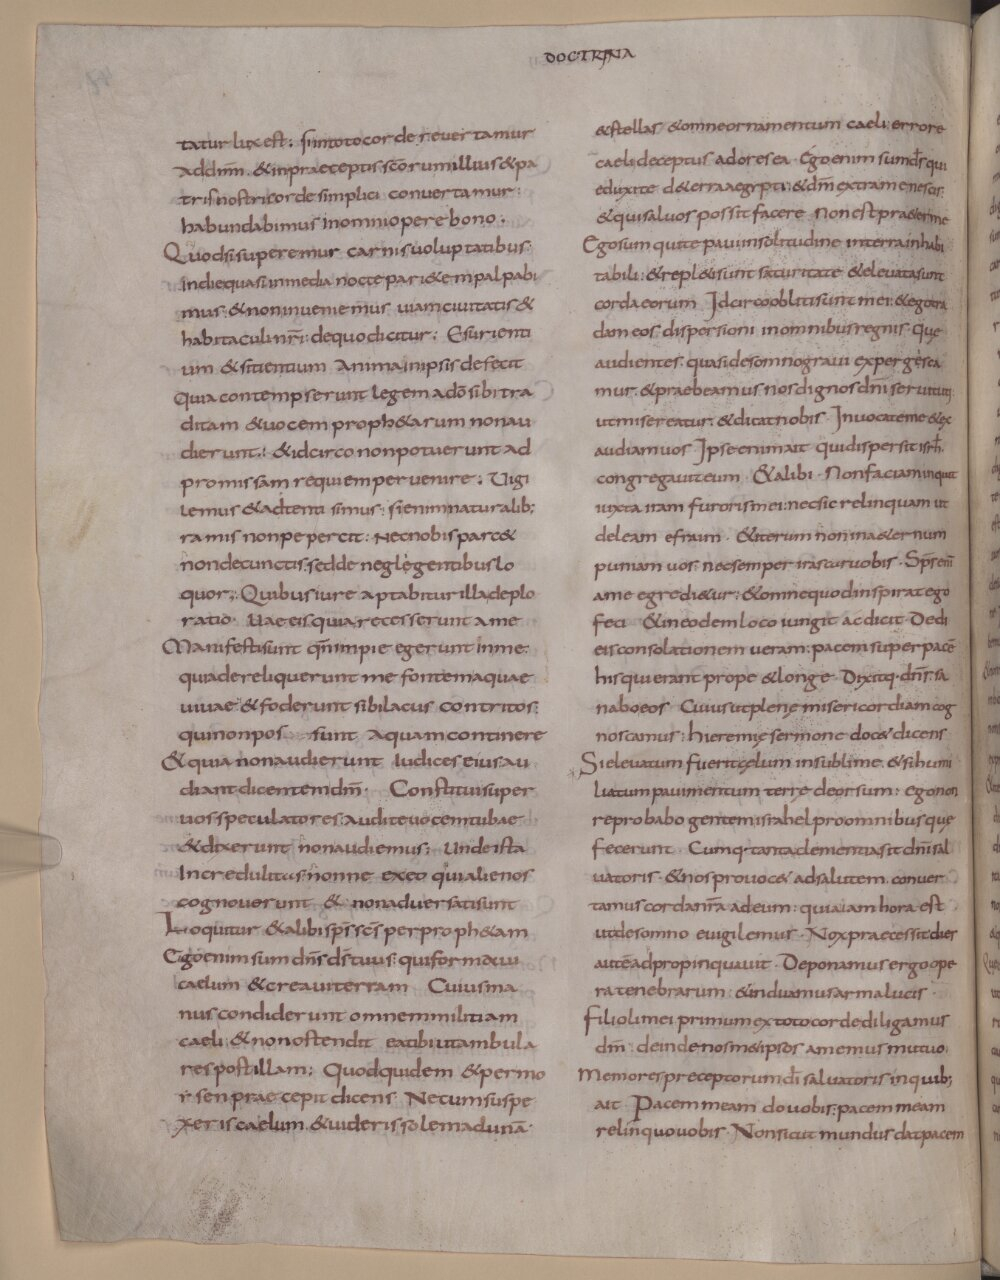 DOCTRINA
tatur lux est; Si in toto corde revertamur
ad dnm. & in praeceptis scorum illius & pa
tris nostri corde simplici convertamur:
habundabimus in omni opere bono.
Quod si superemur carnis voluptatibus
indie quasi in media nocte pari&em palpabi
mus. & non inveniemus viam civitatis &
habitaculi nri: de quo dicitur; Esurienti
um & sitientium anima in ipsis defecit
Quia contempserunt legem a do sibi tra
ditam & vocem proph&arum non au
dierunt; & idcirco non potuerunt ad
promissam requiem pervenire; Vigi
lemus & adtenti simus: si enim naturalib;
ramis non pepercit: Nec nobis parc&
non de cunctis. sed de neglegentibus lo
quor; Quibus iure aptabitur illa deplo
ratio. Vae eis quia recesserunt a me
Manifesti sunt qm impie egerunt in me.
quia dereliquerunt me fontem aquae
vivae. & foderunt sibi lacus contritos:
qui non pos sunt aquam continere
& quia non audierunt iudices eius au
diant dicentem dnm. Constitui super
vos speculatores. audite vocem tubae
& dixerunt non audiemus; Unde ista
incredulitas. nonne ex eo qui alienos
cognoverunt & non adversati sunt
Loquitur & alibi sps scs per proph&am
Ego enim sum dns ds tuus. qui formavi
caelum & creavi terram Cuius ma
nus condiderunt omnem militiam
caeli. & non ostendit ea tibi ut ambula
res post illam; Quod quidem & per mo
rsen praecepit dicens Ne cum suspe
xeris caelum. & videris solem ad unā
& stellas & omne ornamentum caeli errore
caeli deceptus adores ea. Ego enim sum ds qui
eduxi te de terra aegypti. & dm extra me nescis.
& qui salvos possit facere non est praeter me
Ego sum qui te pavi in solitudine in terra inhabi
tabili. & repl&i sunt saturitate & elevata sunt
corda eorum Idcirco obliti sunt mei. & ego tra
dam eos dispersioni in omnibus regnis. que
audientes. quasi de somno gravi expergisca
mur. & praebeamus nos dignos dni servituti
ut misereatur. & dicat nobis. Invocate me & ex
audiam vos Ipse enim ait qui dispersit isrh.
congregavit eum. & alibi. Non faciam inquit
iuxta iram furoris mei: nec sic relinquam ut
deleam efraim. & iterum non in a&ernum
puniam vos. nec semper irascar vobis. Sps enī
a me egredi&ur. & omne quod inspirat ego
feci & in eodem loco iungit ac dicit. Dedi
eis consolationem veram: pacem super pacē
his qui erant prope & longe. Dixitq. dns. sa
nabo eos Cuius ut plenę misericordiam cog
noscamus: hieremię sermone doc& dicens
Si elevatum fuerit cęlum in sublime. & si humi
liatum pavimentum terrę deorsum: ego non
reprobabo gentem israhel pro omnibus que
fecerunt. Cumq. tanta clementia sit dni sal
vatoris. & nos provoc& ad salutem. conver
tamus corda nra ad eum: quia iam hora est
ut de somno evigilemus. Nox praecessit dies
autē adpropinquavit. Deponamus ergo ope
ra tenebrarum: & induamus arma lucis.
Filioli mei primum ex toto corde diligamus
dm. deinde nosm&ipsos amemus mutuo
Memores preceptorum di salvatoris in quib;
ait. Pacem meam do vobis: pacem meam
relinquo vobis. Non sicut mundus dat pacem